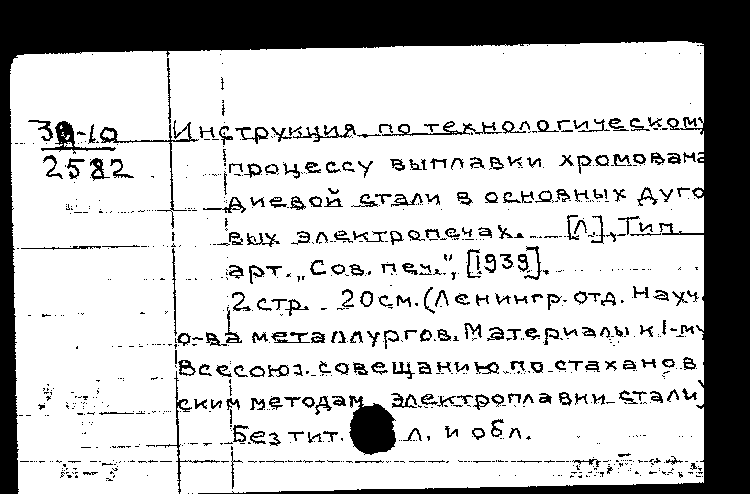 39-10
2582
Инструкция по технологическому
процессу выплавки хромована
диевой стали в основных дуго
вых электропечах. [Л.], Тип.
арт. „Сов. печ.“, [1939].
2 стр. 20 см. (Ленингр. отд. Науч.
о-ва металлургов. Материалы к I-му
Всесоюз. совещанию по стаханов
ским методам электроплавки стали)
Без тит. л. и обл.